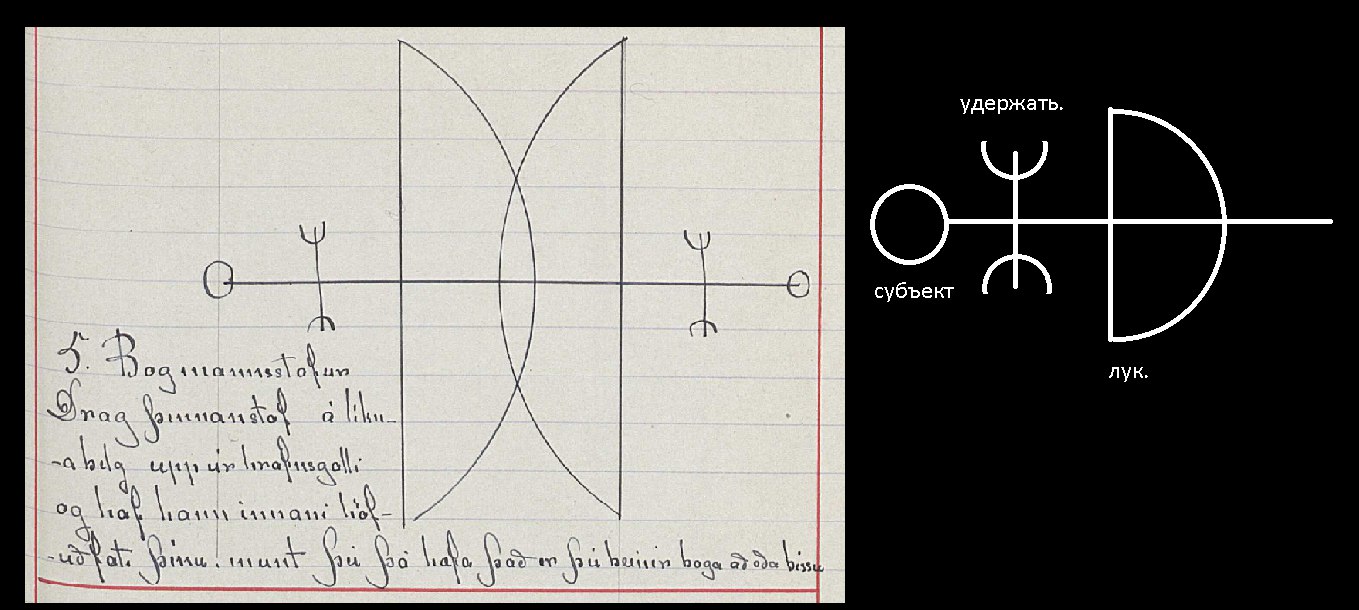 5. Bogmannsstafur
Drag þinnanstaf á líkn-
-abelg upp úr hrafnsgalli
og haf hann innaní höf-
-uðfati þínu. munt þú þá hafa það er þú beinir boga að eda bissu
удержать.
субъект
лук.